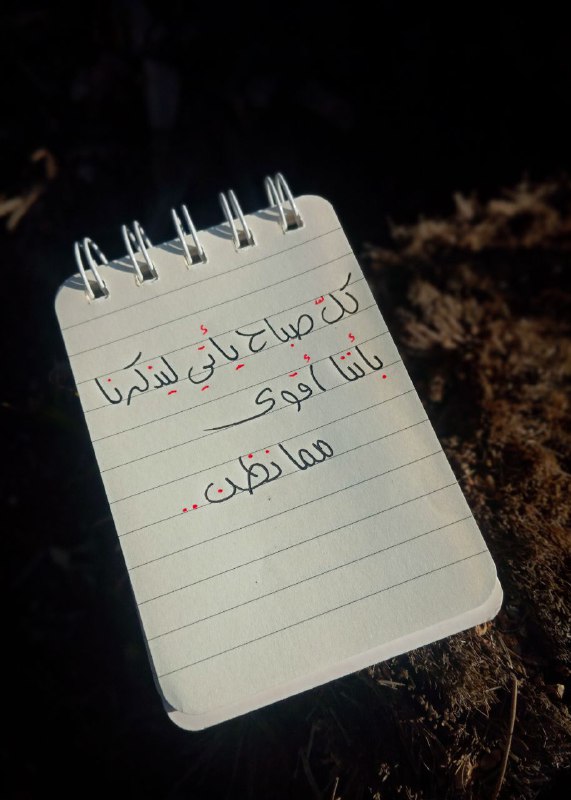 كلّ صباح يأتي ليذكرنا
بأننا أقوى
مما نظن..